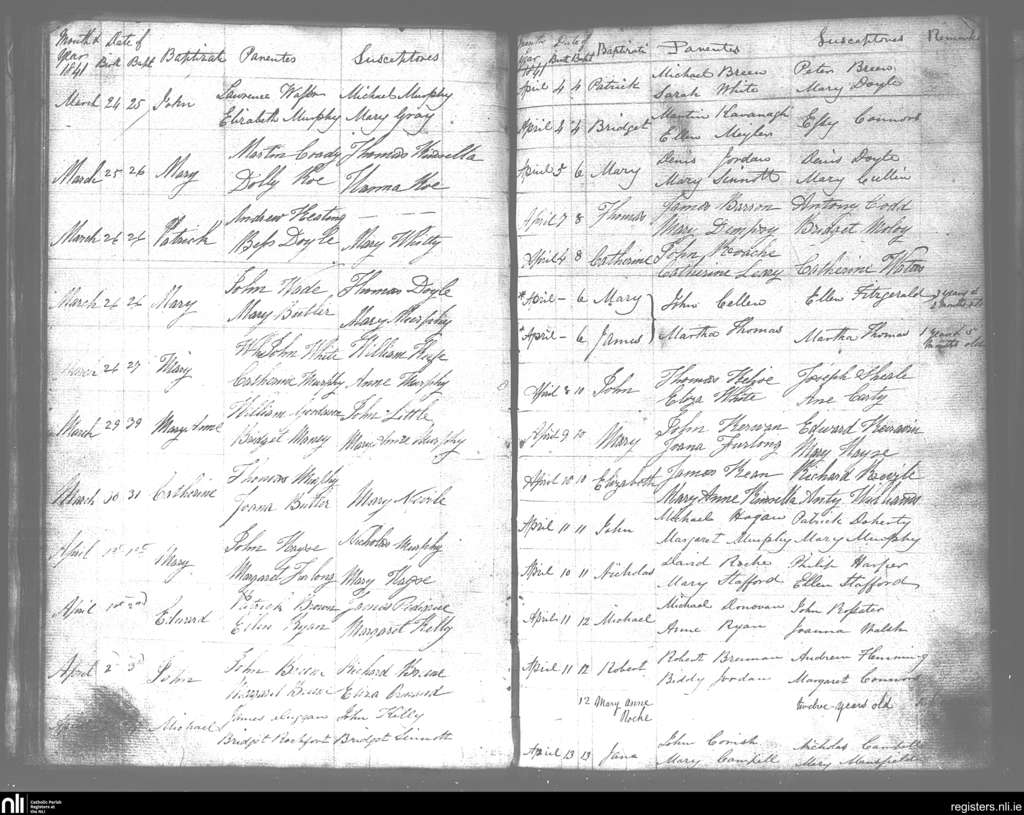 Month & Date of
Year Birth Bapt Baptizati Parentes Susceptores
1841
March 24 25 John Lawrence Michael Murphy
Elizabeth Murphy Mary Gray
March 25 26 Mary Martin Coady Thomas Kinsella
Dolly Roe Hanna Roe
March 26 26 Patrick Andrew Keating — — —
Bess Doyle Mary Whitty
March 26 26 Mary John Wade Thomas Doyle
Mary Butler Mary Murphy
March 26 27 Mary John White William
Catherine Murphy Anne Murphy
March 29 Mary Anne William John Little
Bridget Mary Anne Murphy
March 30 31 Catherine Thomas Murphy
Joana Butler Mary
April 1st 1st Mary John Hayse Nicholas Murphy
Margaret Furlong Mary Hayse
April 1st 2nd Edward Patrick Brown James
Ellen Ryan Margaret Kelly
April 2 3 John John Richard
Eliza
Michael James Duggan John Kelly
Bridget Rochfort Bridget Sinnott
Month Date of
Year Birth Bapt Baptizati Parentes Susceptores Remarks
1841
April 4 4 Patrick Michael Breen Peter Breen
Sarah White Mary Doyle
April 4 4 Bridget Martin Kavanagh Connors
Ellen Meyler
April 5 6 Mary Denis Jordan Denis Doyle
Mary Sinnott Mary Cullin
April 7 8 Thomas James Barron Antony Codd
Mary Dempsy Bridget
April 4 8 Catherine John Roache
Catherine Leary Catherine
April – 6 Mary John Cullen Ellen Fitzgerald 3 years &
months old
April – 6 James Martha Thomas Martha Thomas 1 year & 5
months old
April 8 10 John Thomas Kehoe Joseph
Eliza White Ane Carty
April 9 10 Mary John Kerwan Edward Kerwan
Joana Furlong Mary Hayse
April 10 10 Elizabeth James Kean Richard
Mary Anne Kinsella
April 11 11 John Michael Hogan Patrick Doherty
Margaret Murphy Mary Murphy
April 10 11 Nicholas David Roche Philip Harper
Mary Stafford Ellen Stafford
April 11 12 Michael Michael Donovan John Rossiter
Anne Ryan Joanna Walsh
April 11 12 Robert Robert Brennan Andrew Flemming
Biddy Jordan Margaret Connors
12 Mary Anne twelve years old
Roche
April 13 13 Jana John Cornish Nicholas
Mary Campell Mary Mansfield
nli Catholic Parish
Registers at
the NLI
registers.nli.ie